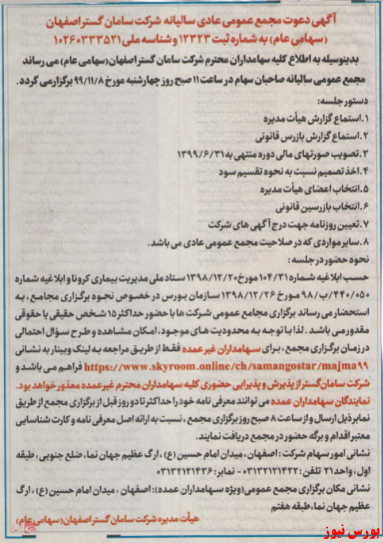 آگهی دعوت مجمع عمومی عادی سالیانه شرکت سامان گستر اصفهان
(سهامی عام) به شماره ثبت ۱۲۳۲۳ و شناسه ملی ۱۰۲۶۰۳۳۳۵۲۱
بدینوسیله به اطلاع کلیه سهامداران محترم شرکت سامان گستر اصفهان (سهامی عام) می رساند
مجمع عمومی سالیانه صاحبان سهام در ساعت ۱۱ صبح روز چهارشنبه مورخ ۹۹/۱۱/۸ برگزار می گردد.
دستور جلسه:
۱.استماع گزارش هیأت مدیره
۲.استماع گزارش بازرس قانونی
۳.تصویب صورتهای مالی دوره منتهی به ۱۳۹۹/۶/۳۱
۴.اخذ تصمیم نسبت به نحوه تقسیم سود
۵.انتخاب اعضای هیأت مدیره
۶.انتخاب بازرسین قانونی
۷.تعیین روزنامه جهت درج آگهی های شرکت
۸.سایر مواردی که در صلاحیت مجمع عمومی عادی می باشد.
نحوه حضور در جلسه:
حسب ابلاغیه شماره ۱۰۴/۳۱ مورخ ۱۳۹۸/۱۲/۲۰ ستاد ملی مدیریت بیماری کرونا و ابلاغیه شماره
۴۴۰/۰۵۰/ب/۹۸ مورخ ۱۳۹۸/۱۲/۲۶ سازمان بورس در خصوص نحوه برگزاری مجامع، به
استحضار می رساند برگزاری مجامع عمومی شرکت ها با حضور حداکثر ۱۵ شخص حقیقی یا حقوقی
مقدور می باشد. لذا با توجه به محدودیت های موجود، امکان مشاهده و طرح سؤال احتمالی
در زمان برگزاری مجامع، برای سهامداران غیر عمده فقط از طریق مراجعه به لینک وبینار به نشانی
https://www.skyroom.online/ch/samangostar/majma99 فراهم می باشد و
شرکت سامان گستر از پذیرش و پذیرایی حضوری کلیه سهامداران محترم غیرعمده معذور خواهد بود.
نمایندگان سهامداران عمده می توانند معرفی نامه خود را حداکثر تا دو روز قبل از برگزاری مجمع از طریق
نمابر ذیل ارسال و از ساعت ۸ صبح روز برگزاری مجمع، نسبت به ارائه اصل معرفی نامه و کارت شناسایی
معتبر اقدام و برگه حضور در مجمع دریافت نمایند.
نشانی امور سهام شرکت: اصفهان، میدان امام حسین (ع)، ارگ عظیم جهان نما، ضلع جنوبی، طبقه
اول، واحد ۲۱ تلفن: ۰۳۱۳۲۱۲۱۴۲۲ - نمابر: ۰۳۱۳۲۱۲۱۴۳۶
نشانی مکان برگزاری مجمع عمومی (ویژه سهامداران عمده): اصفهان، میدان امام حسین (ع)، ارگ
عظیم جهان نما، طبقه هفتم
هیأت مدیره شرکت سامان گستر اصفهان (سهامی عام)
بورس نیوز